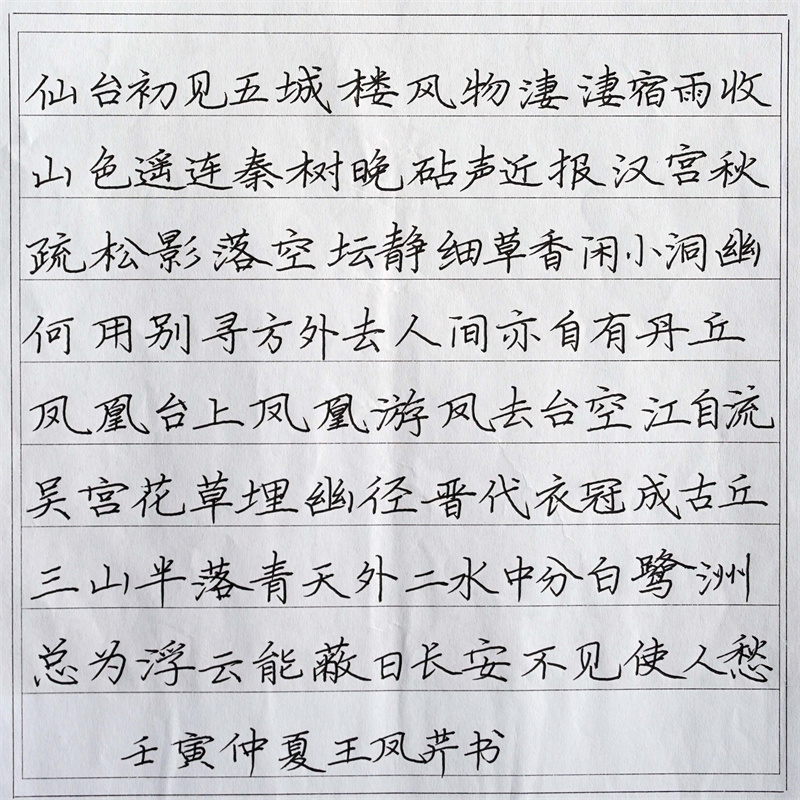 仙台初见五城楼风物淒淒宿雨收
山色遥连秦树晚砧声近报汉宫秋
疏松影落空坛静细草香闲小洞幽
何用别寻方外去人间亦自有丹丘
凤凰台上凤凰游凤去台空江自流
吴宫花草埋幽径晋代衣冠成古丘
三山半落青天外二水中分白鹭洲
总为浮云能蔽日长安不见使人愁
壬寅仲夏王凤芹书